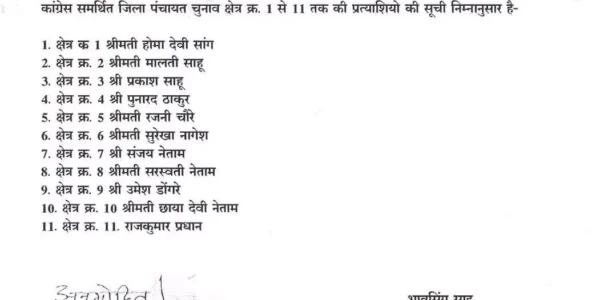 कांग्रेस समर्थित जिला पंचायत चुनाव क्षेत्र क्र. 1 से 11 तक की प्रत्याशियो की सूची निम्नानुसार है-
1. क्षेत्र क 1 श्रीमती होमा देवी सांग
2. क्षेत्र क्र. 2 श्रीमती मालती साहू
3. क्षेत्र क्र. 3 श्री प्रकाश साहू
4. क्षेत्र क्र. 4 श्री पुनारद ठाकुर
5. क्षेत्र क्र. 5 श्रीमती रजनी चौरे
6. क्षेत्र क्र. 6 श्रीमती सुरेखा नागेश
7. क्षेत्र क्र. 7 श्री संजय नेताम
8. क्षेत्र क्र. 8 श्रीमती सरस्वती नेताम
9. क्षेत्र क्र. 9 श्री उमेश डोंगरे
10. क्षेत्र क्र. 10 श्रीमती छाया देवी नेताम
11. क्षेत्र क्र. 11. राजकुमार प्रधान